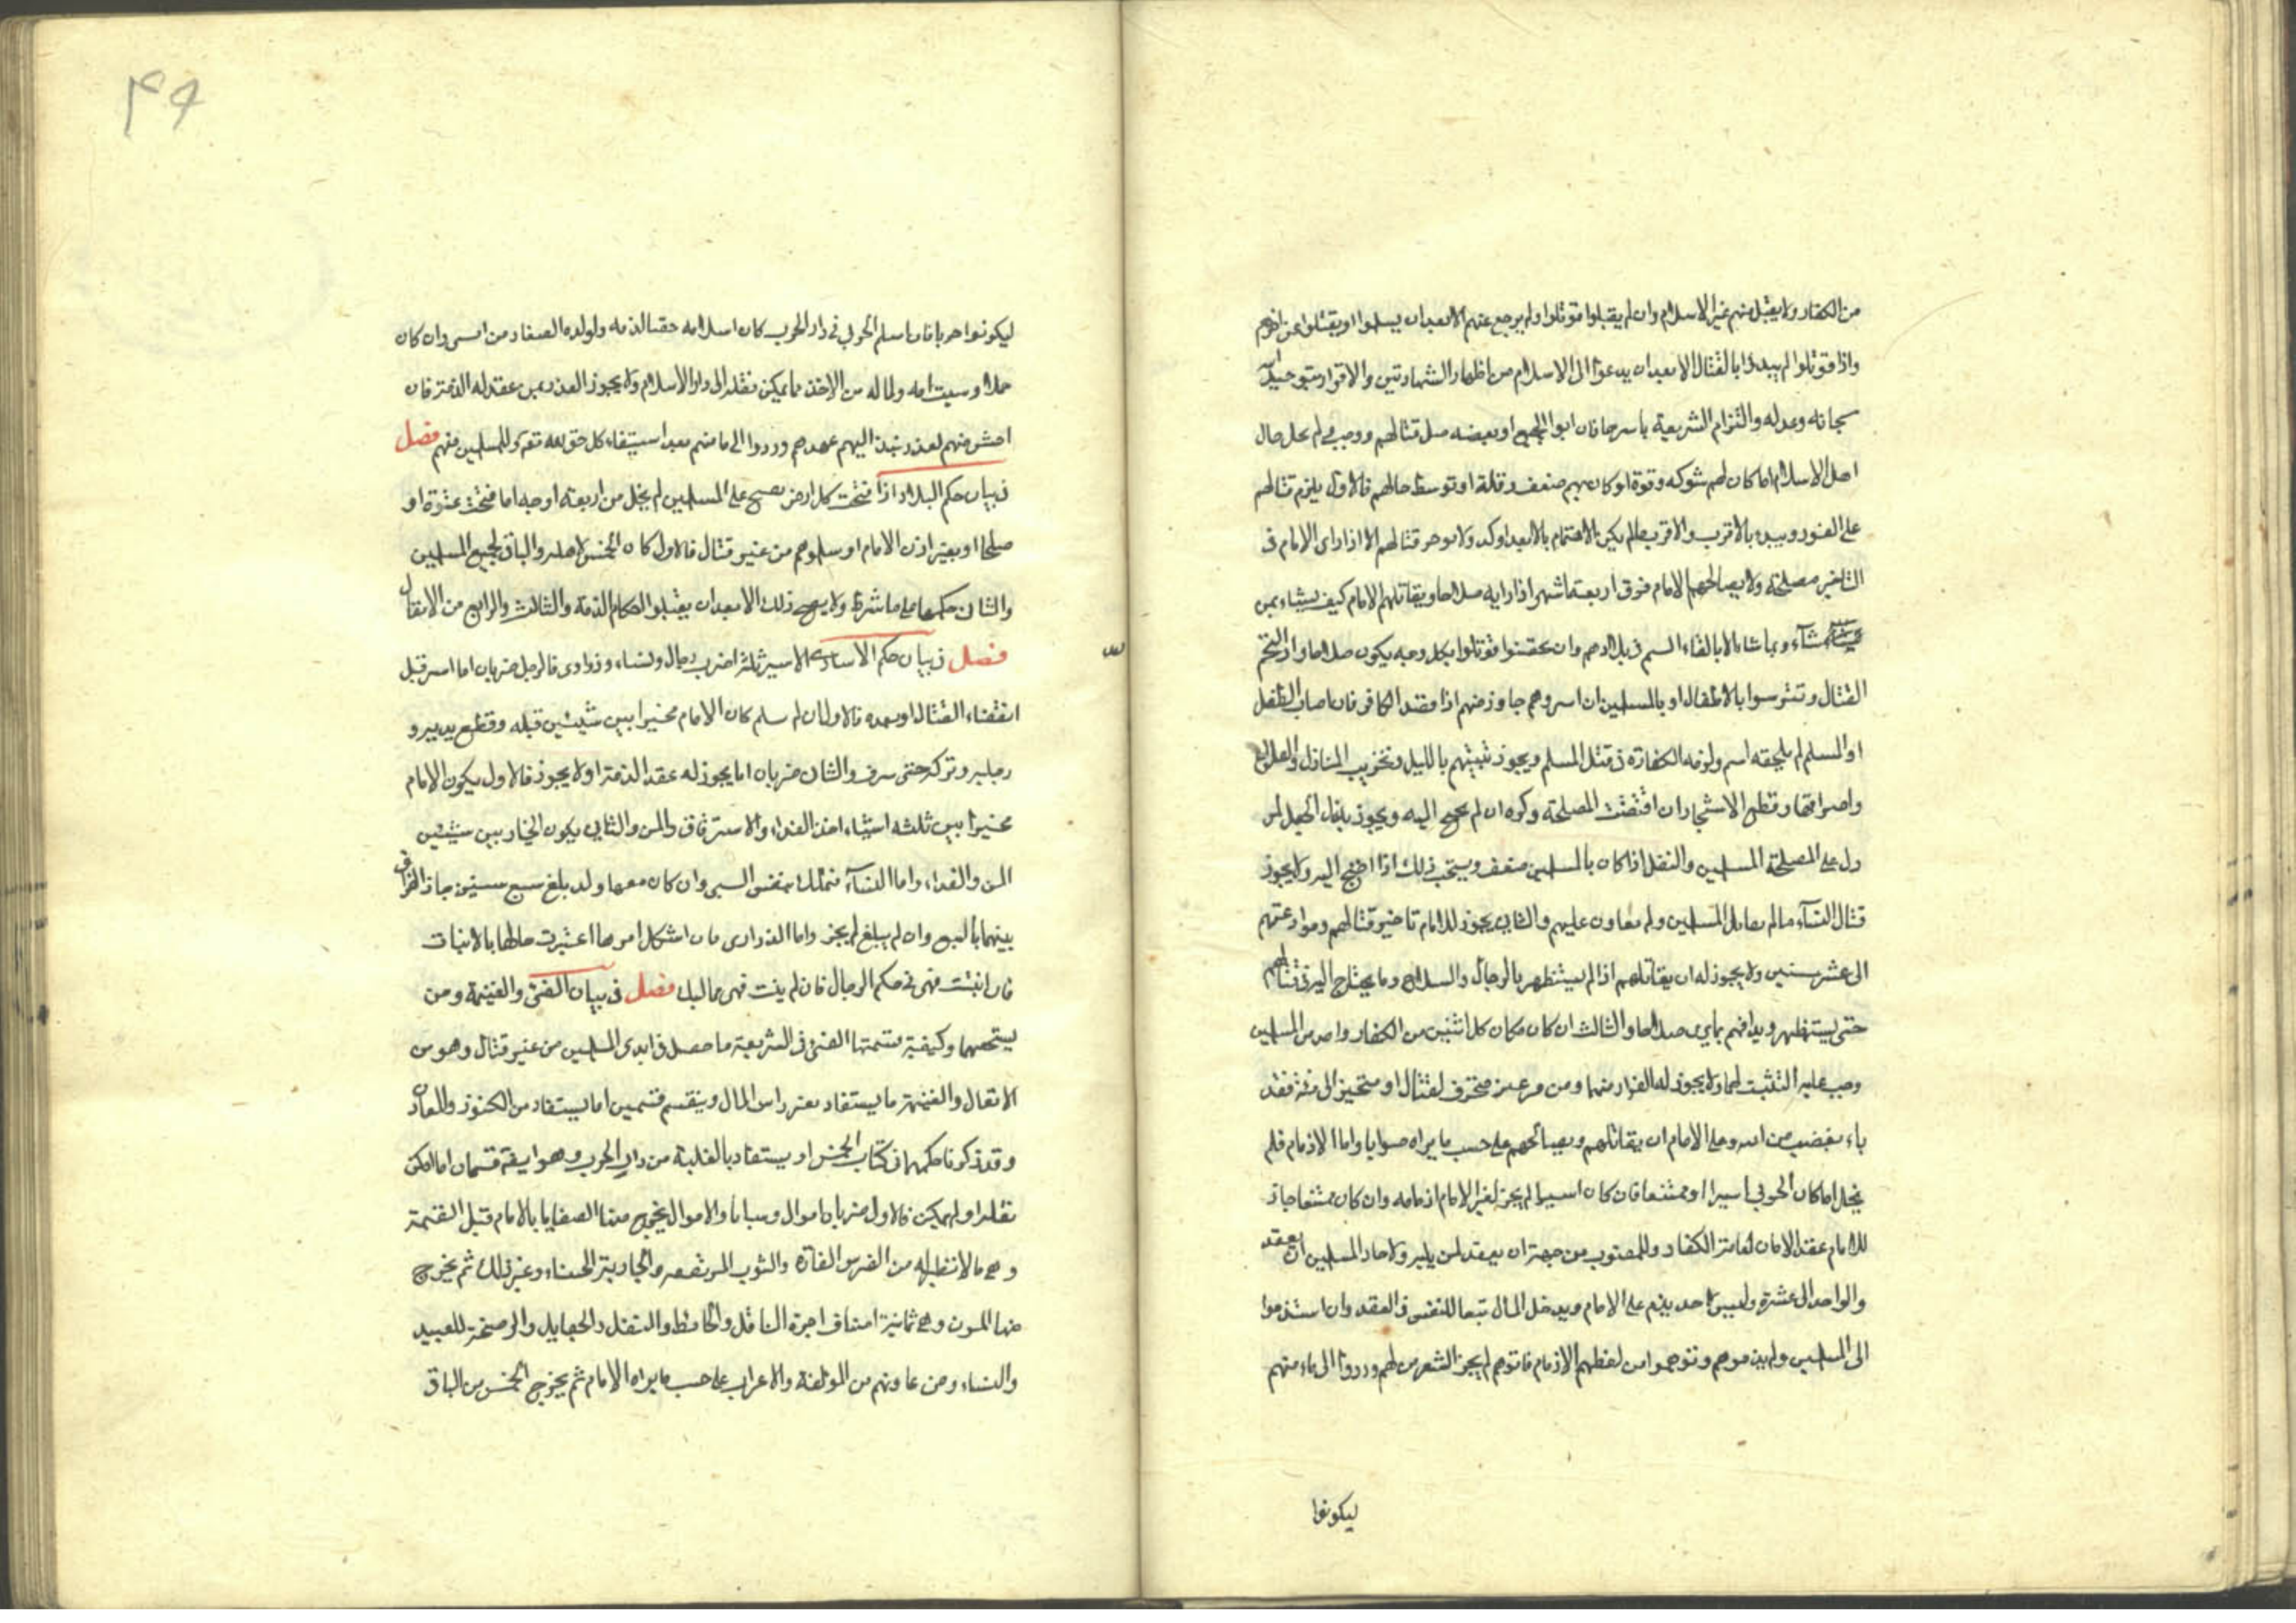 من الكفار ولا يقبل منهم غير الاسلام وان لم يقبلوا قوتلوا ولم يرجع عنهم الا بعد ان يسلموا او يقتلوا عن اخرهم
واذا قوتلوا لم يبدءوا بالقتال الا بعد ان يدعوا الى الاسلام من اظهار الشهادتين والاقرار بتوحيد الله
سبحانه وعدله والتزام الشريعة باسرها فان ابوا الجميع او بعضه حل قتالهم ووجب في كل حال
اهل الاسلام اما كان لهم شوكه وقوة او كان بهم ضعف وقلة او توسط حالهم فالاول يلزم قتالهم
على الفور ويبدء بالاقرب والاقرب ما لم يكن الاهتمام بالابعد اوكد ولا يوخر قتالهم الا اذا راى الامام فى
التاخير مصلحة ولا يصالحهم الامام فوق اربعة اشهر اذا رايه صلاحا ويقاتلهم الامام كيف يشاء بمن
شآء وبما شاء الا بالقاء السم فى بلادهم وان تحصنوا قوتلوا بكل وجه يكون صلاحا واذا التحم
القتال وتترسوا بالاطفال او بالمسلمين ان اسروهم جاوز منهم اذا قصد الكافر فان اصاب الطفل
او المسلم لم يلحقه اسم ولزمه الكفارة فى قتل المسلم ويجوز تبييتهم بالليل وتخريب المنازل والقلاع
واحراقها وقطع الاشجار ان اقتضت المصلحة وكره ان لم يحوج اليه ويجوز بذل الجعل لمن
دل على المصلحة المسلمين والنفل اذا كان بالمسلمين ضعف ويستحب ذلك اذا احتج اليه ولا يجوز
قتال النسآء ما لم يقاتلن المسلمين ولم تعاون عليهم والثانى يجوز للامام تاخير قتالهم وموادعتهم
الى عشر سنين ولا يجوز له ان يقاتلهم اذا لم يستظهر بالرجال والسلاح وما يحتاج اليه فى قتالهم
حتى يستظهر ويدافهم بما يرى صلاحا والثالث ان كان مكان كل اثنين من الكفار واحد من المسلمين
وجب عليه التثبت لهما ولا يجوز له الفرار منهما ومن فر غير متحرف لقتال او متحيز الى فئة فقد
باء بغضب من الله وعلى الامام ان يقاتلهم ويصالحهم على حسب ما يراه صوابا واما الاذمام فلم
يخل اما كان الحربى اسيرا او ممتنعا فان كان اسيرا لم يجز لغير الامام اذمامه وان كان ممتنعا جاز
للامام عقد الامان لعامة الكفار وللمنصوب من جهته ان يعقد لمن يليه ولاحاد المسلمين ان يعقد
والواحد الى عشرة وليس لاحد يذم على الامام ويدخل المال تبعا للنفس فى العقد وان استذموا
الى المسلمين ولم يذموهم وتوهموا من لفظهم الاذمام فاتوهم لم يجز التعرض لهم وردوا الى مامنهم
ليكونوا
۴۹
ليكونوا حربا فان اسلم الحربى فى دار الحرب كان اسلامه حقنا لدمه ولولده الصغار من السبى وان كان
حملا وسبيت امه ولماله من الاخذ مما يمكن نقله الى دار الاسلام ولا يجوز الغدر بمن عقد له الذمة فان
احس منهم بغدر نبذ اليهم عهدهم وردوا الى مامنهم بعد استيفاء كل حق لله تعالى وللمسلمين منهم فصل
فى بيان حكم البلاد اذا فتحت كل ارض تصح على المسلمين لم يخل من اربعة اوجه اما فتحت عنوة او
صلحا او بغير اذن الامام او سلموهم من غير قتال فالاول كان الخمس لاهله والباقى لجميع المسلمين
والثانى حكمها على ما شرط ولا يصح ذلك الا بعد ان يقبلوا احكام الذمة والثالث والرابع من الانفال
فصل فى بيان حكم الاسارى الاسير ثلثة اضرب رجال ونساء وذرارى فالرجل ضربان اما اسر قبل
انقضاء القتال او بعده فالاول ان لم يسلم كان الامام مخيرا بين شيئين قتله وقطع يديه و
رجليه وتركه حتى ينزف والثانى ضربان اما يجوز له عقد الذمة او لا يجوز فالاول يكون الامام
مخيرا بين ثلثه اشياء اخذ الفداء والاسترقاق والمن والثانى يكون الخيار بين شيئين
المن والفداء واما النسآء فتملك بنفس السبى وان كان معها ولد بلغ سبع سنين جاز الفراق
بينهما بالبيع وان لم يبلغ لم يجز واما الذرارى فان اشكل امرها اعتبرت حالها بالانبات
فان انبتت فهى فى حكم الرجال فان لم ينبت فهى مماليك فصل فى بيان الفئ والغنيمة ومن
يستحقهما وكيفية قسمتها الفئ فى الشريعة ما حصل فى ايدى المسلمين من غير قتال وهو من
الانفال والغنيمة ما يستفاد بغير راس المال وينقسم قسمين اما يستفاد من الكنوز والمعادن
وقد ذكرنا حكمهما فى كتاب الخمس او يستفاد بالغلبة من دار الحرب وهو ايضا قسمان اما امكن
نقله او لم يمكن فالاول ضربان اموال وسبايا والاموال يخرج منها الصفايا بالامام قبل القسمة
وهى ما لا نظير له من الفرس الفارة والثوب المرتفعه والجارية الحسناء وغير ذلك ثم يخرج
منها المون وهى ثمانية اصناف اجرة الناقل والحافظ والنفل والجعايل والرضخة للعبيد
والنساء ومن عاونهم من المولفة والاعراب على حسب ما يراه الامام ثم يخرج الخمس من الباقى